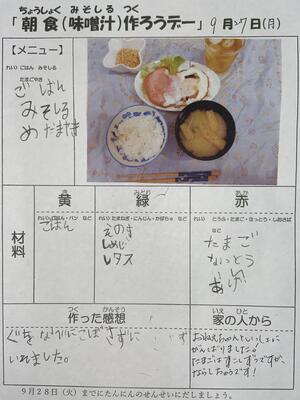 ちょうしょく みそしる つく
「朝食(味噌汁)作ろうデー」 9月27日(月)
【メニュー】
れい) ごはん みそしる
たまごやき
ごはん
みそしる
めだまやき
き
黄
みどり
緑
あか
赤
材料
れい) ごはん・パン など
ごはん
れい) たまねぎ・にんじん・かぼちゃ など
えのき
しめじ
レタス
れい) とうふ・たまご・なっとう・しおさば
など
たまご
なっとう
あげ
つく かんそう
作った感想
ぐをなべにこぼさずに
いれました。
いえ ひと
家の人から
おねえちゃんといっしょに
がんばりました!
たまごはすこしずつですが、
ならしちゅうです!
9月28日(火)までにたんにんのせんせいにだしましょう。